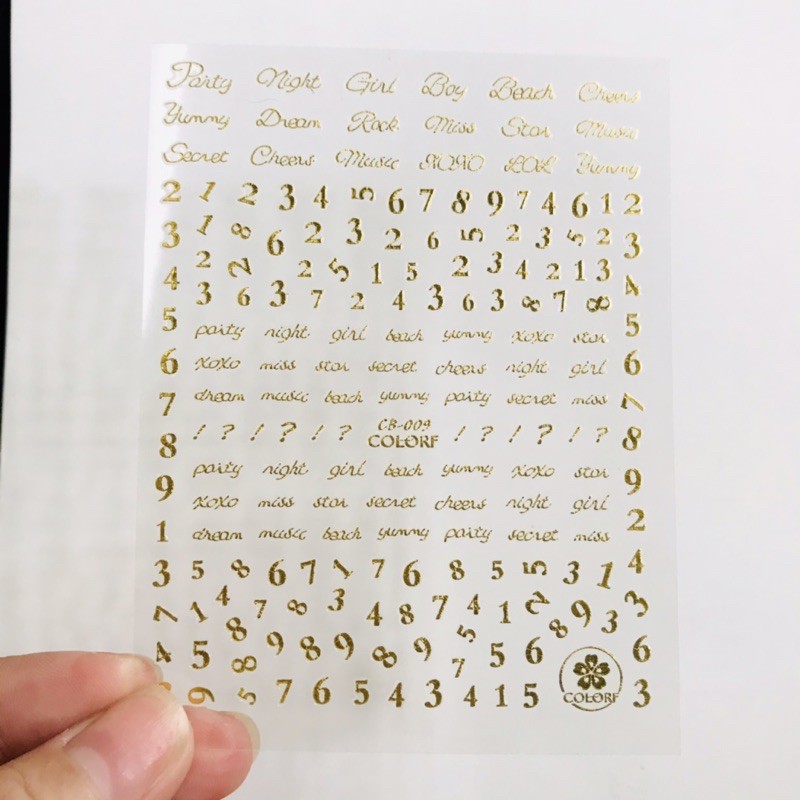 Party Night Girl Boy Beach Cheers
Yummy Dream Rock Miss Star Music
Secret Cheers Music XOXO LOL Yummy
2 1 2 3 4 5 6 7 8 9 7 4 6 1 2
3 1 8 6 2 3 2 6 5 2 3 5 2 3
4 2 2 2 5 1 5 2 3 4 2 1 3 4
3 6 3 7 2 4 3 6 3 8 7 8
5 party night girl beach yummy xoxo star 5
6 xoxo miss star secret cheers night girl 6
7 dream music beach yummy party secret miss 7
8 ! ? ! ? ! ? CB-009 ! ? ! ? ! ? 8
COLORF
9 party night girl beach yummy xoxo star 9
xoxo miss star secret cheers night girl
1 dream music beach yummy party secret miss 2
3 5 8 6 7 1 7 6 8 5 5 3 1 4
7 1 4 7 8 3 4 8 7 4 1 2 9 3 3
4 5 8 8 9 8 9 8 9 7 5 5 6 8 6
9 5 7 6 5 4 3 4 1 5 COLORF 3